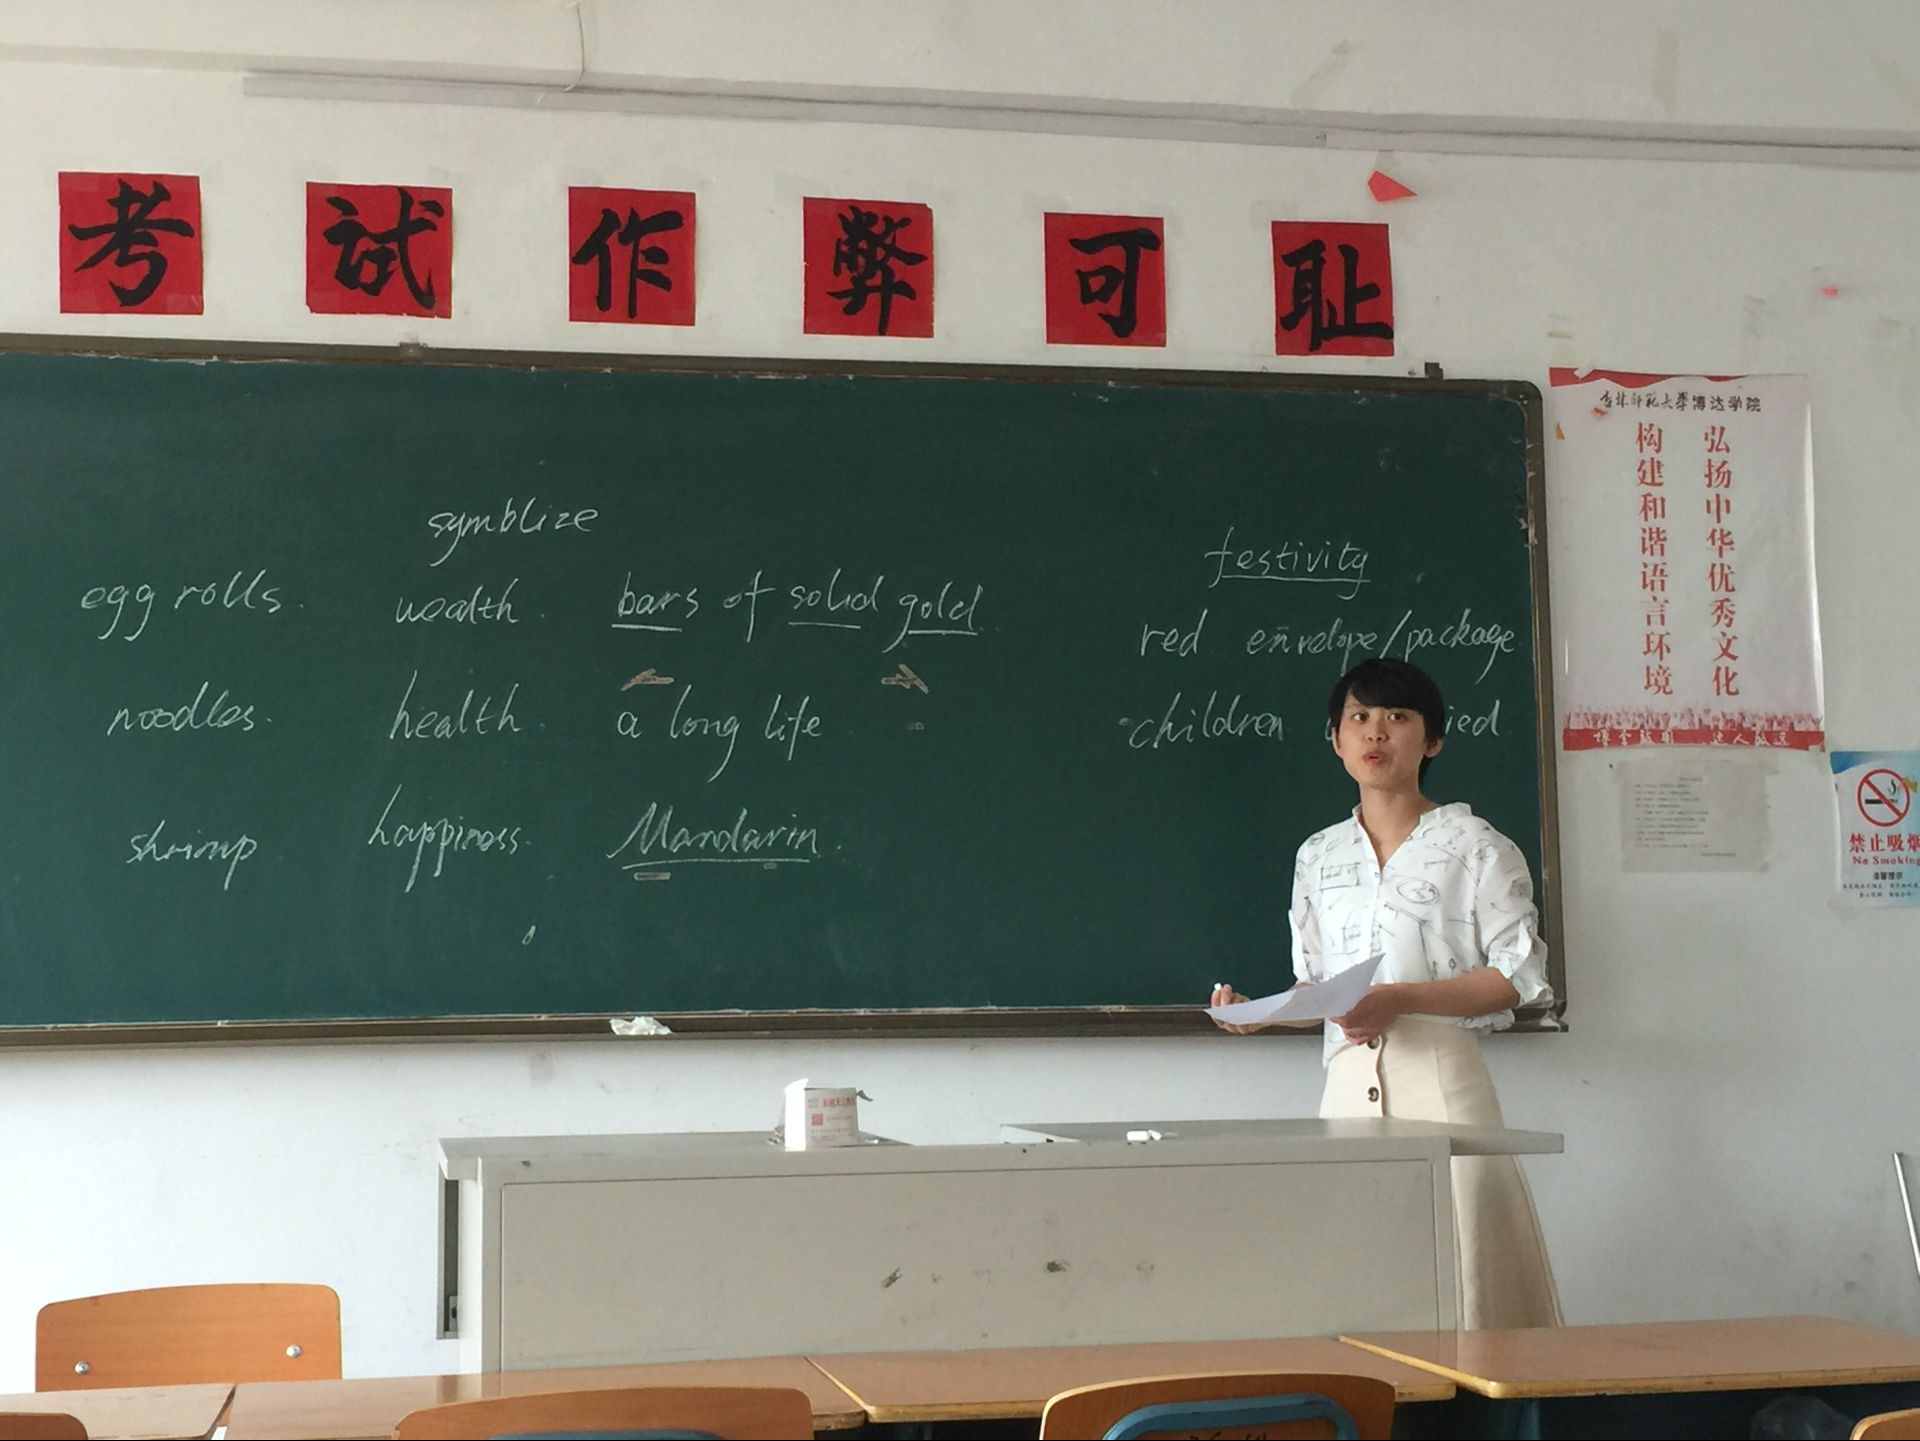 考试作弊可耻
symblize
egg rolls. wealth. bars of solid gold
noodles. health. a long life
shrimp happiness. Mandarin.
festivity
red envelope/package
children
吉林师范大学博达学院
弘扬中华优秀文化
构建和谐语言环境
禁止吸烟
No Smoking
温馨提示